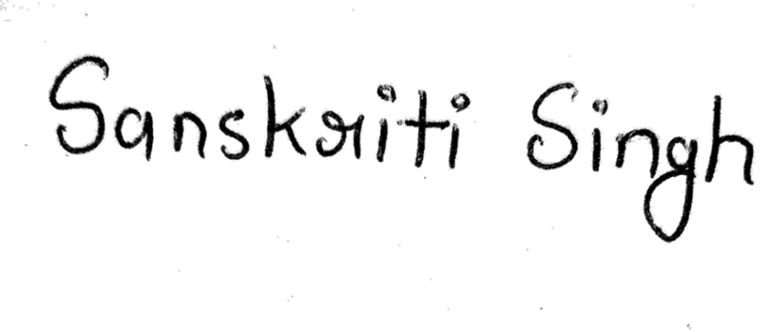 Sanskriti Singh